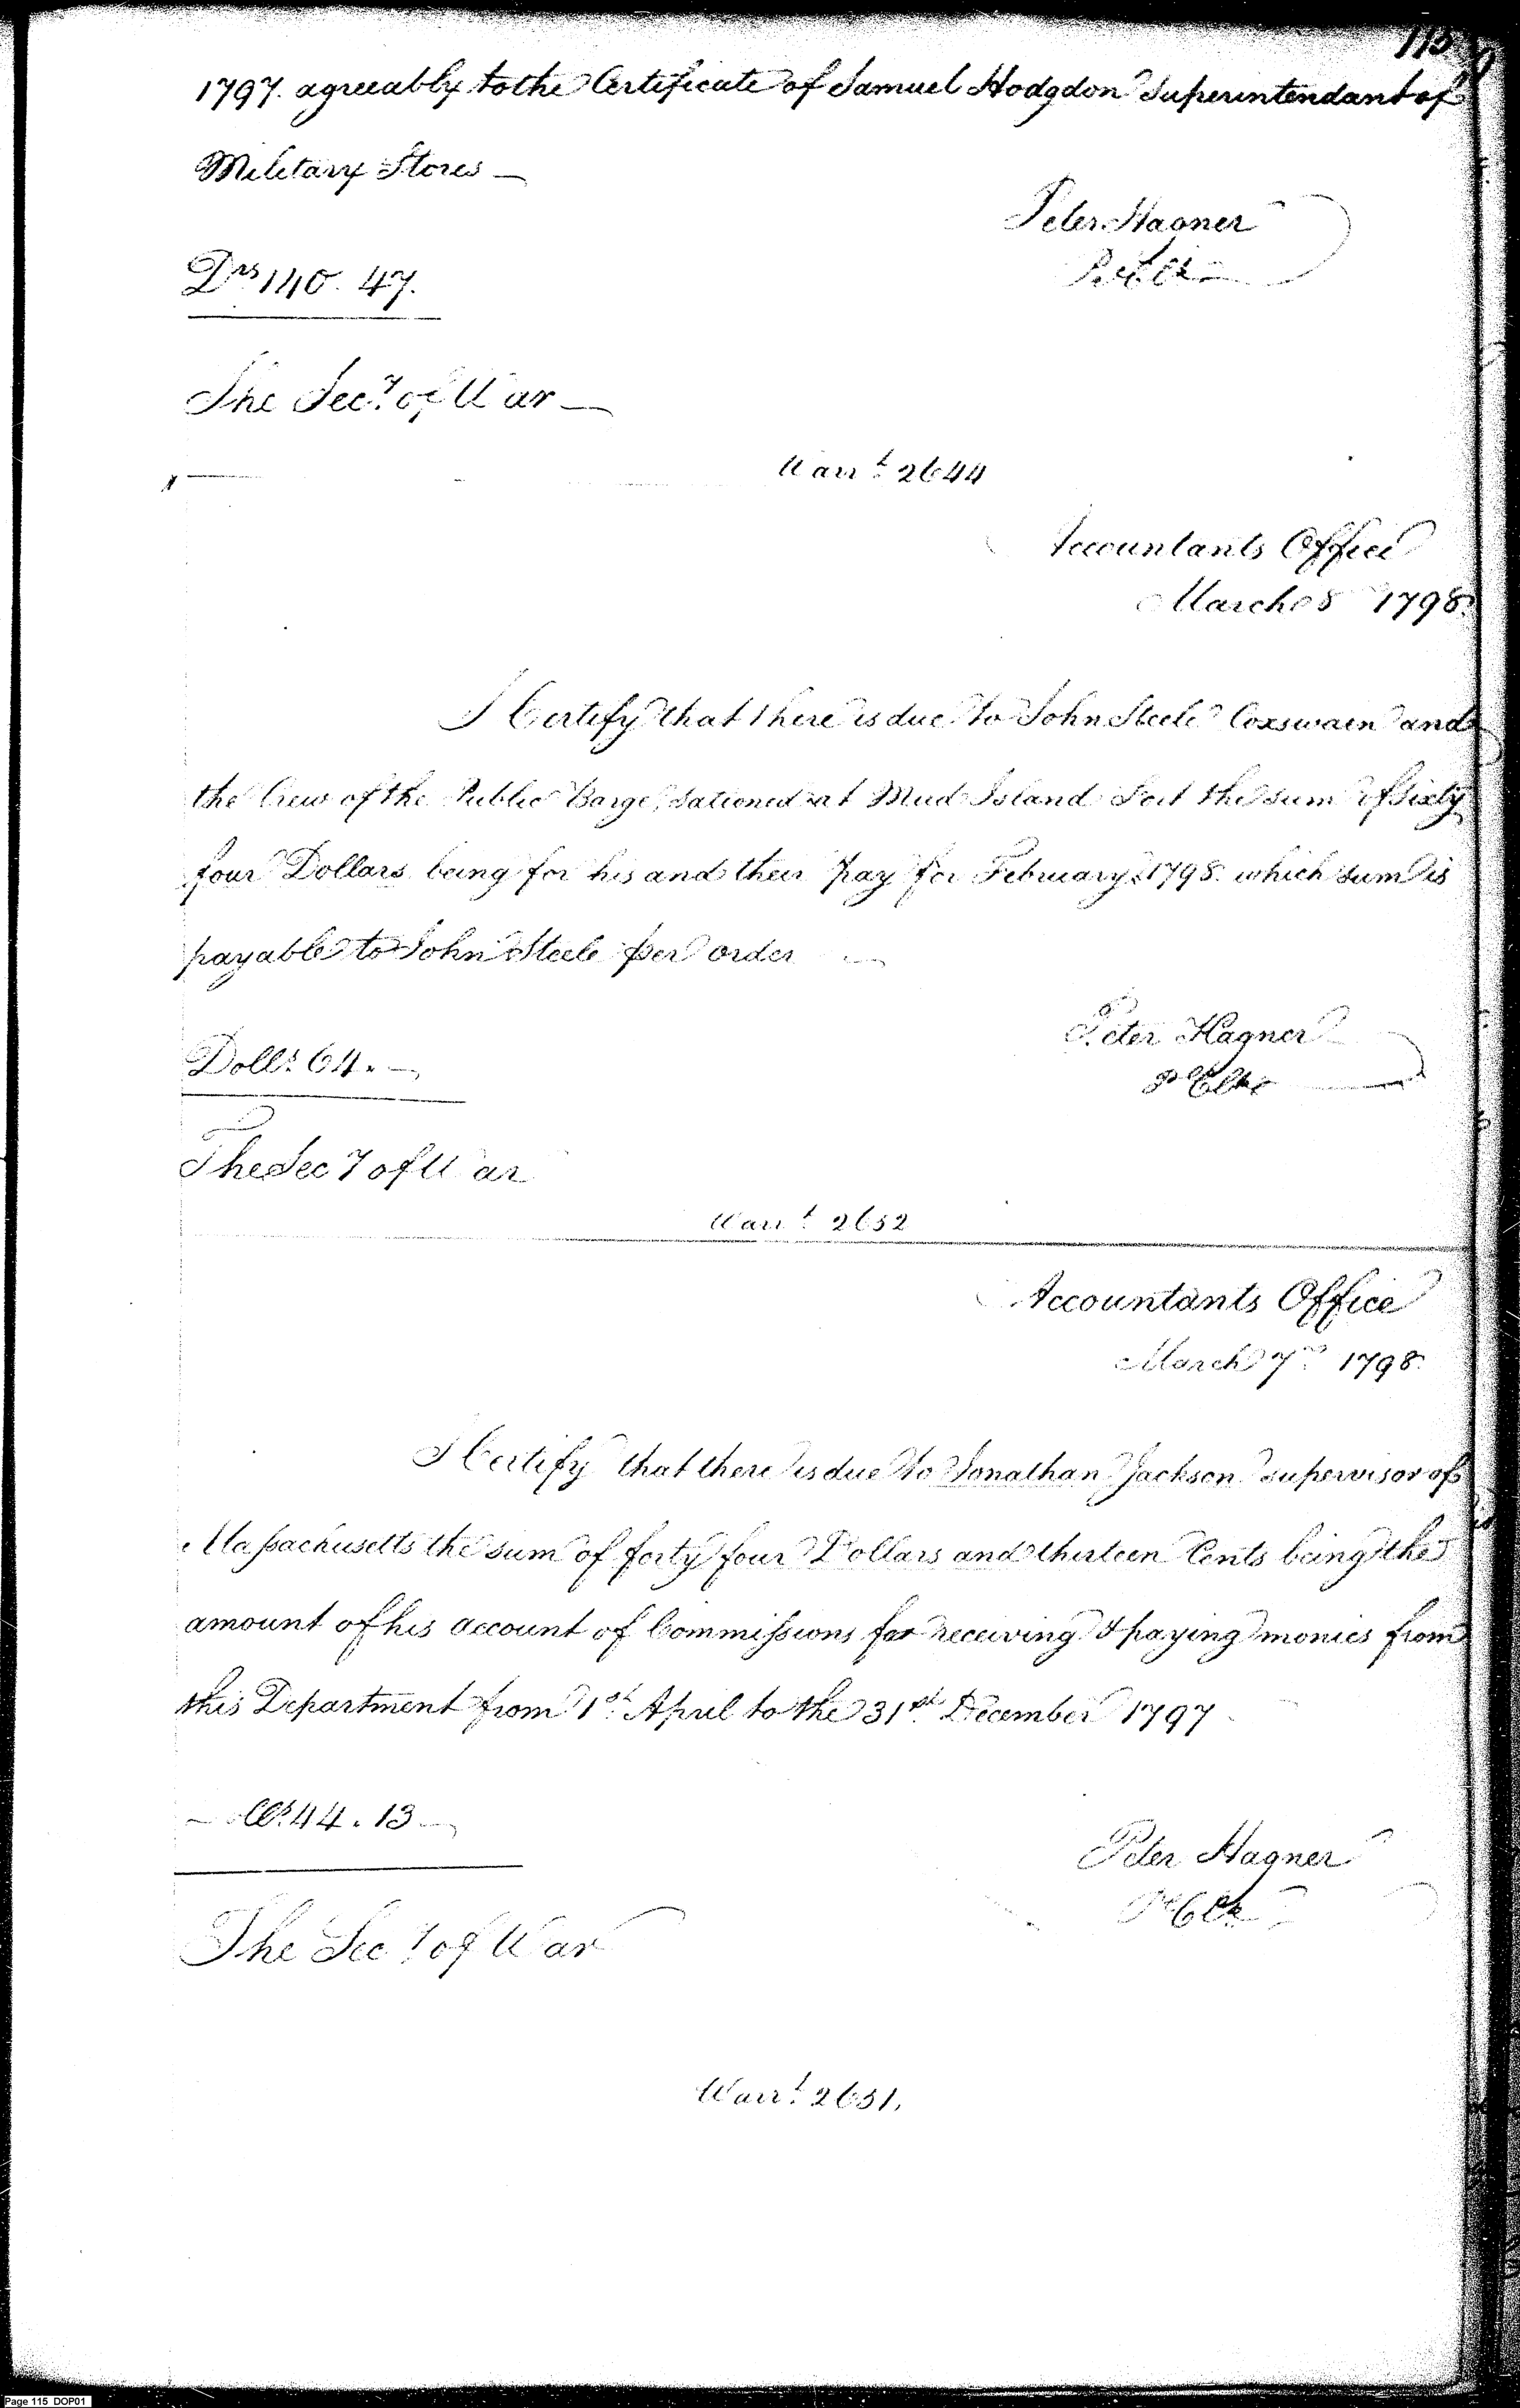 115
1797. agreeably to the Certificate of Samuel Hodgdon Superintendant of
Military Stores —
Peter Hagner
P. Clk
Drs 140. 47.
The Secy. of War —
Warrt. 2644
Accountants Office
March 8 1798.
I Certify that there is due to John Steele Coxswain and
the Crew of the Public Barge, Sationed at Mud Island Fort the sum of Sixty
four Dollars being for his and their pay for February 1798. which sum is
payable to John Steele per order —
Peter Hagner
Pl Clk
Dolls. 64. —
The Secy of War
Warrt. 2652
Accountants Office
March 7th. 1798.
I Certify that there is due to Jonathan Jackson supervisor of
Massachusetts the sum of forty four Dollars and thirteen Cents being the
amount of his account of Commissions for receiving & paying monies from
this Department from 1st. April to the 31st. December 1797
Dolls. 44. 13 —
Peter Hagner
Pl Clk
The Secy of War
Warrt. 2651.
Page 115 DOP01